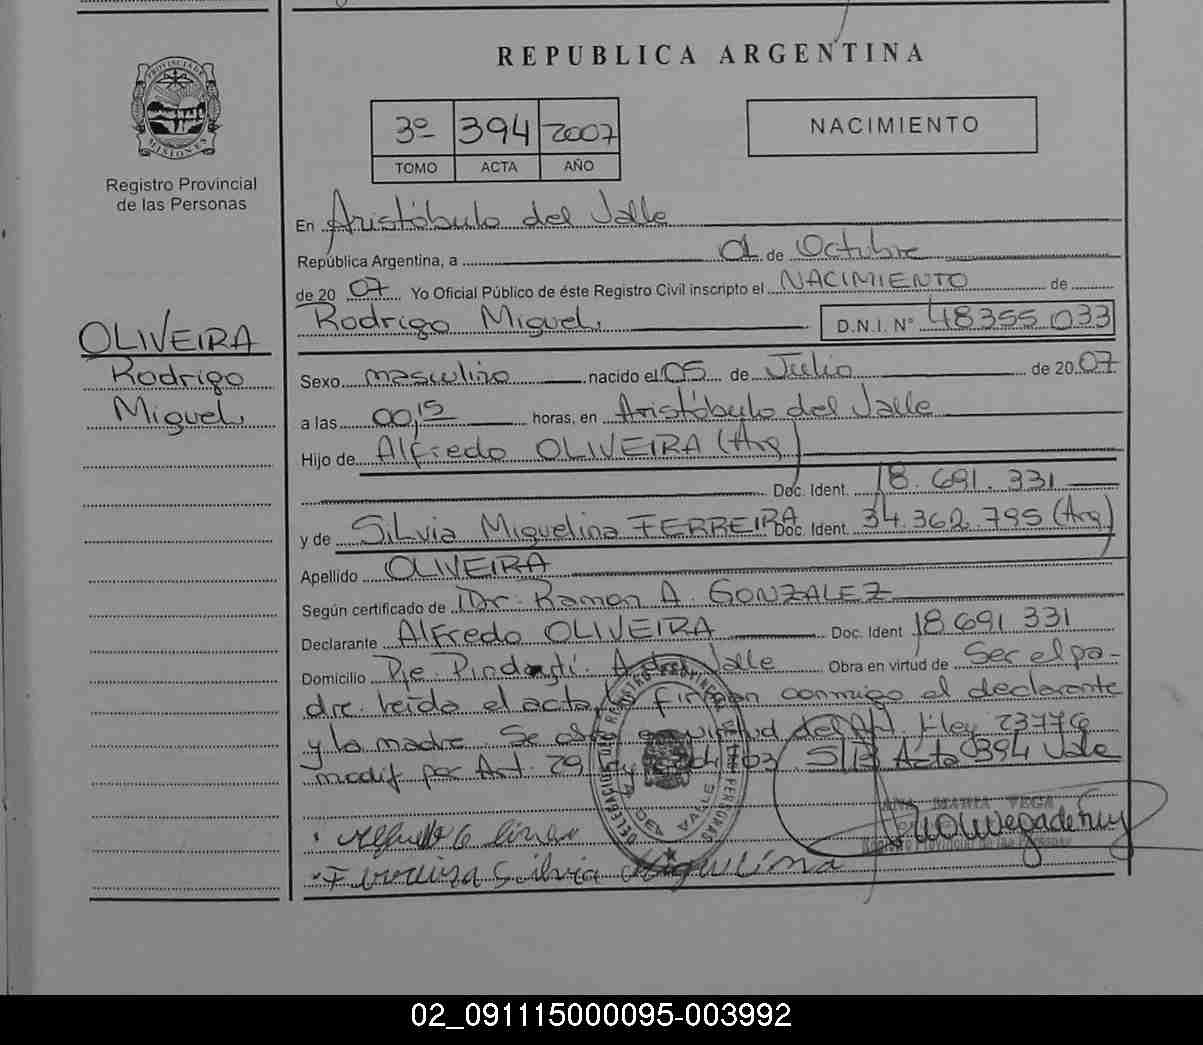 REPUBLICA ARGENTINA
PROVINCIA DE MISIONES
Registro Provincial
de las Personas
3º 394 2007
TOMO ACTA AÑO
NACIMIENTO
OLIVEIRA
Rodrigo
Miguel
En Aristóbulo del Valle
República Argentina, a 01 de Octubre
de 2007 Yo Oficial Público de éste Registro Civil inscripto el NACIMIENTO de
Rodrigo Miguel D.N.I. Nº 48355.033
Sexo masculino nacido el 05 de Julio de 2007
a las 00,15 horas, en Aristóbulo del Valle
Hijo de Alfredo OLIVEIRA (Arg)
Doc. Ident. 18.691.331
y de Silvia Miguelina FERREIRA Doc. Ident. 34.362.795 (Arg)
Apellido OLIVEIRA
Según certificado de Dr. Ramon A. GONZALEZ
Declarante Alfredo OLIVEIRA Doc. Ident 18.691.331
Domicilio Pje. Pindaytí. Valle Obra en virtud de Ser el pa-
dre. Leída el acta, la firman conmigo el declarante
y la madre. Se en virtud del Art. 1 ley 23776
modif por Art. 29 S/R Acta 0394 Vale
DELEGACION DEL REGISTRO PROVINCIAL DE LAS PERSONAS
DEL VALLE
ANA MARIA VEGA
Registro Provincial de las Personas
Ferreira Silvia Miguelina
02_091115000095-003992